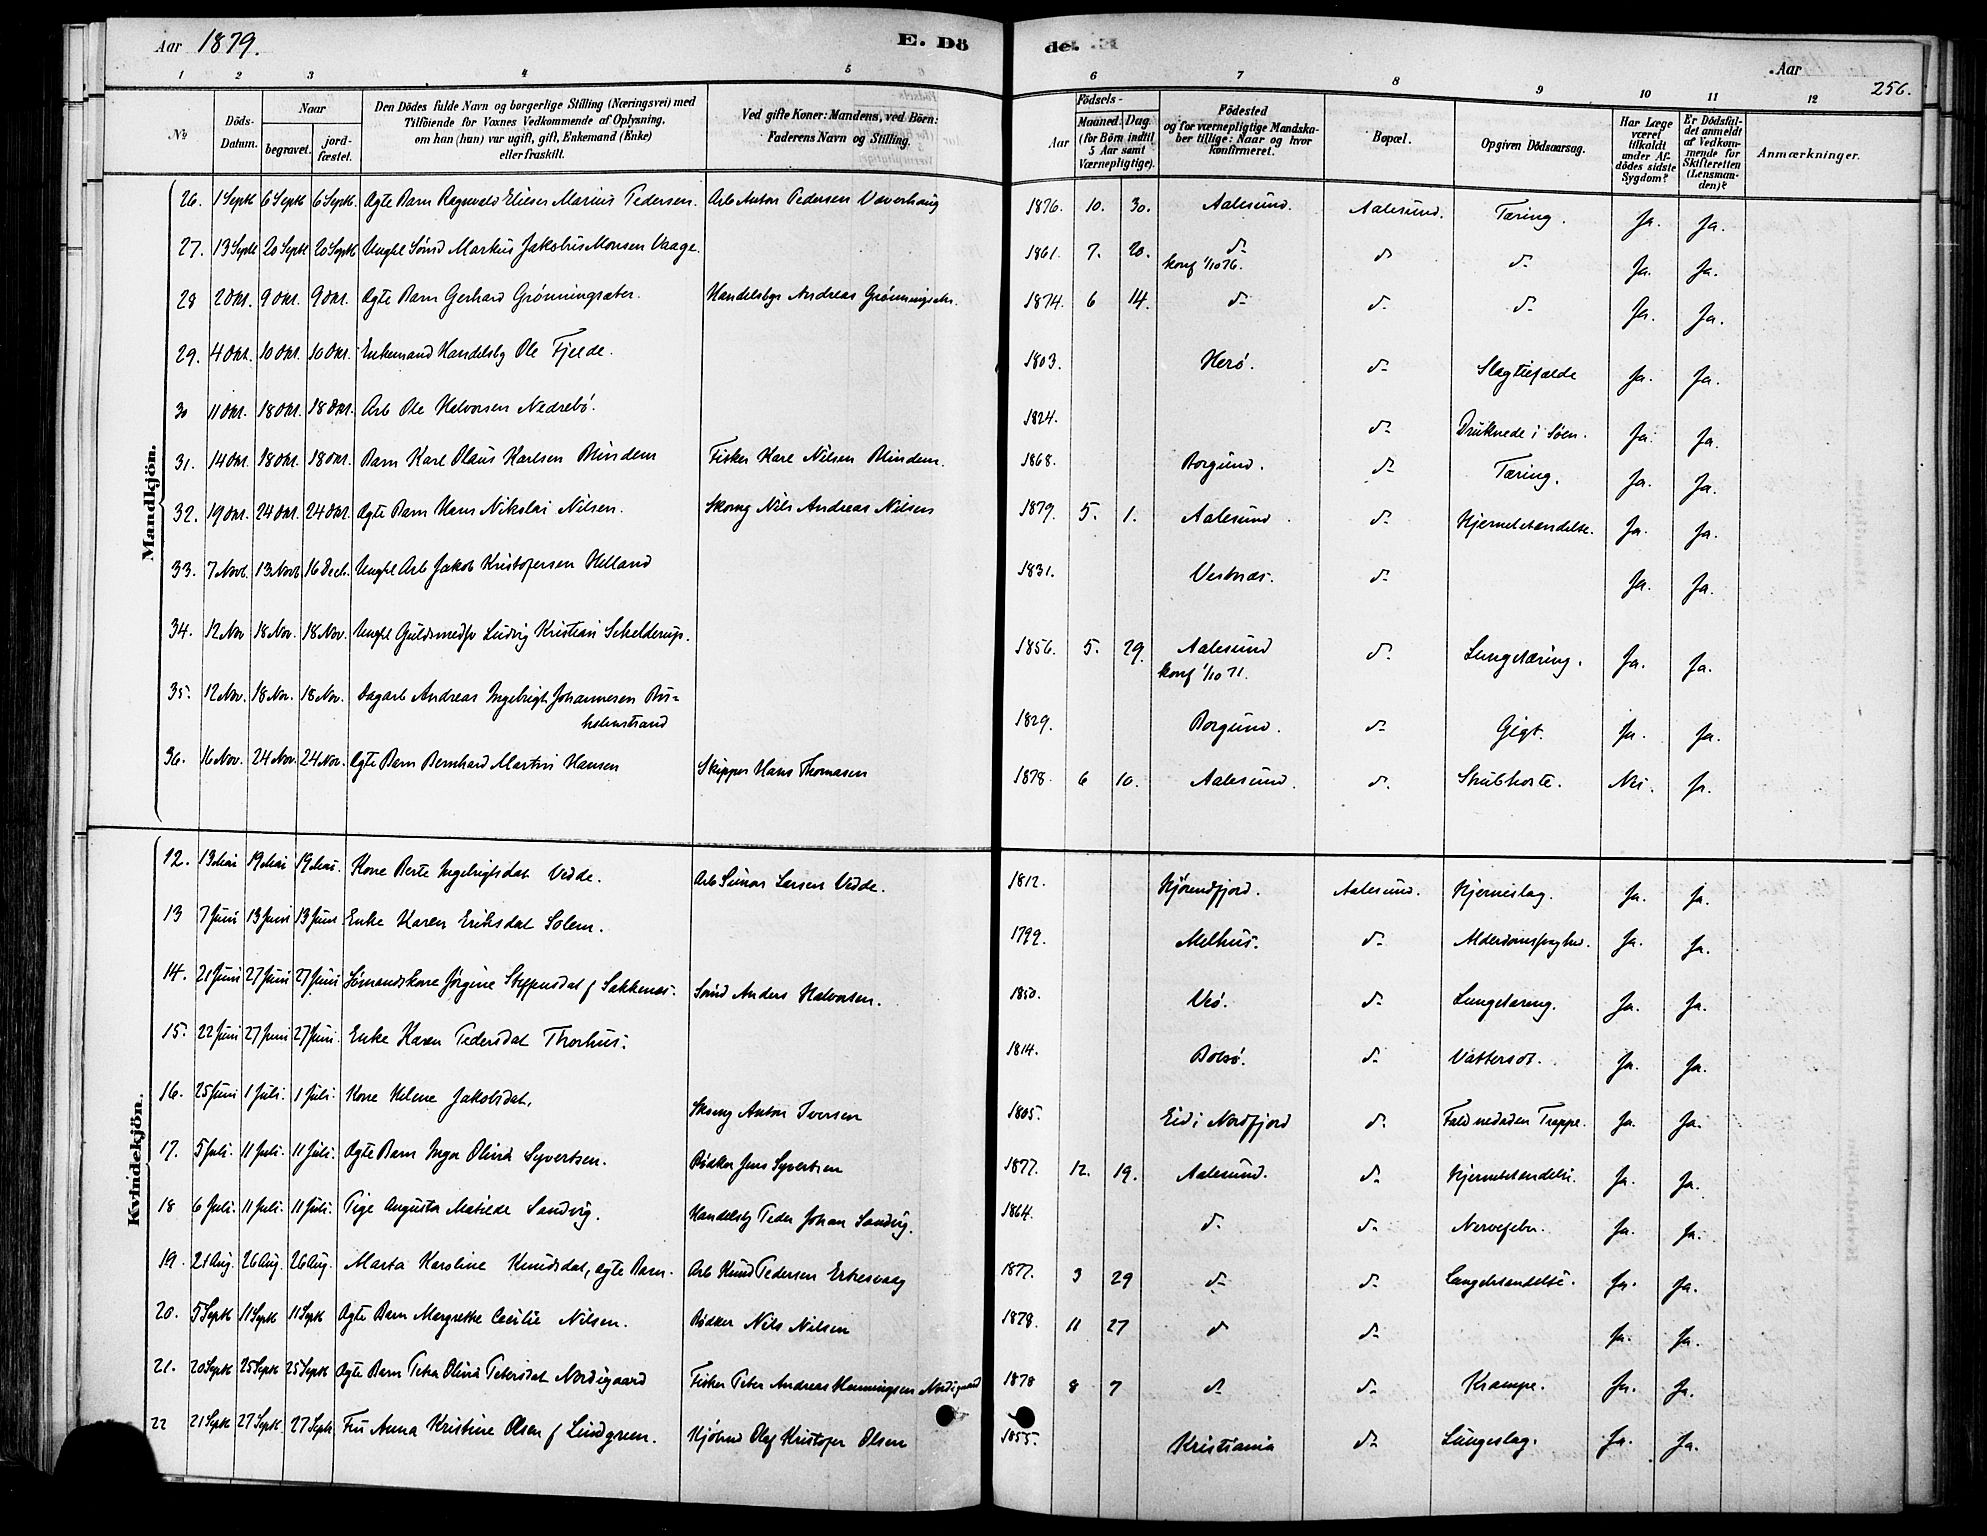 Aar 1879. E. Dö de. Aar 256.
1 2 3 4 5 6 7 8 9 10 11 12
No Döds-Datum. Naar begravet. jord-fæstet. Den Dödes fulde Navn og borgerlige Stilling (Næringsvei) med Tilföiende for Voxnes Vedkommende af Oplysning, om han (hun) var ugift, gift, Enkemand (Enke) eller fraskilt. Ved gifte Koner: Mandens, ved Börn: Faderens Navn og Stilling. Födsels- Aar Maaned. Dag (for Börn indtil 5 Aar samt Værnepligtige). Födested og for værnepligtige Mandskaber tillige: Naar og hvor konfirmeret. Bopæl. Opgiven Dödsaarsag. Har Læge været tilkaldt under Afdödes sidste Sygdom? Er Dödsfaldet anmeldt af Vedkommende for Skifteretten (Lensmanden)? Anmærkninger.
Mandkjön.
26. 1 Septb 6 Septb 6 Septb. Ægte Barn Ragnvald Elieser Marius Pedersen. Arb Anton Pedersen Vaverhaug 1876. 10. 30. Aalesund. Aalesund. Tæring. Ja. Ja.
27. 13 Septb 20 Septb 20 Septb Ungkl Sømd Markus Jakobus Monsen Vaage. 1861. 7. 20. do konf 1/10 76. do do Ja. Ja.
28 2 Okt. 9 Okt. 9 Okt. Ægte Barn Gerhard Grønningsæter. Handelsbgr Andreas Grønningsæter. 1874. 6 14. do do do Ja. Ja.
29. 4 Okt. 10 Okt. 10 Okt. Enkemand Handelsbg Ole Fjelde. 1803. Herø. do Slagtilfælde Ja. Ja.
30 11 Okt. 18 Okt. 18 Okt. Arb Ole Halvorsen Nedrebö. 1824. do Druknede i Søen. Ja. Ja.
31. 14 Okt. 18 Okt. 18 Okt. Barn Karl Olaus Karlsen Blindem Fisker Karl Nilsen Blindem. 1868. Borgund. do Tæring. Ja. Ja.
32. 19 Okt. 24 Okt. 24 Okt. Ægte Barn Hans Nikolai Nilsen. Skomg Nils Andreas Nilsen 1879. 5. 1. Aalesund. do Hjernebetændelse. Ja. Ja.
33. 7 Novb. 13 Novb 16 Decb. Ungkl Arb Jakob Kristofersen Helland 1831. Vestnæs. do Ja. Ja.
34. 12 Nov 18 Nov. 18 Nov. Ungkl Guldsmedsv Ludvig Kristian Schelderup. 1856. 5. 29. Aalesund konf 1/10 71. do Lungetæring. Ja. Ja.
35. 12 Nov. 18 Nov. 18 Nov. Dagarb Andreas Ingebrigt Johannesen Bu=
holmstrand 1829. Borgund. do Gigt. Ja. Ja.
36. 16 Nov. 24 Nov 24 Nov. Ægte Barn Bernhard Martin Hansen Skipper Hans Thomasen 1878. 6 10. Aalesund. do Strubhoste. Nei. Ja.
Kvindekjön.
12. 13 Mai 19 Mai 19 Mai. Kone Berte Ingebrigtsdat Vedde. Arb Simon Larsen Vedde. 1812. Hjørundfjord. Aalesund. Hjerneslag. Ja. Ja.
13 7 Juni 13 Juni 13 Juni Enke Karen Eriksdat Solem. 1799. Melhus. do Alderdomssvaghed. Ja. Ja.
14. 21 Juni 27 Juni 27 Juni Sømandskone Jørgine Steffensdat f Sekkenæs. Sømd Anders Halvorsen. 1850. Veø. do Lungetæring. Ja. Ja.
15. 22 Juni 27 Juni 27 Juni. Enke Karen Pedersdat Thorhus. 1814. Bolsø. do Vattersot. Ja. Ja.
16. 25 Juni 1 Juli. 1 Juli. Kone Helene Jakobsdat. Skomg Anton Iversen 1805. Eid i Nordfjord do Fald nedaden Trappe. Ja. Ja.
17. 5 Juli. 11 Juli. 11 Juli. Ægte Barn Inga Olina Syvertsen. Bødker Jens Syvertsen 1877. 12. 19. Aalesund. do Hjernebetændelse. Ja. Ja.
18 6 Juli. 11 Juli. 11 Juli. Pige Augusta Matilde Sandvig. Handelsbg Peder Johan Sandvig. 1864. do do Nervefeber. Ja. Ja.
19. 21 Aug. 26 Aug. 26 Aug. Marta Karoline Knudsdat, ægte Barn. Arb Knud Pedersen Erkesvaag 1877. 3 29 do do Lungebetændelse. Ja. Ja.
20. 5 Septb 11 Septb 11 Septb Ægte Barn Margrethe Cecilie Nilsen. Bødker Nils Nilsen 1878. 11 27 do do Ja. Ja.
21. 20 Septb 25 Septb 25 Septb Ægte Barn Petra Olina Petersdat Nordigaard Fisker Peter Andreas Henningsen Nordigaard 1878 8 7 do do Krampe. Ja. Ja.
22 21 Septb 27 Septb. 27 Septb Fru Anna Kristine Olsen f Lindgreen. Kjøbmd Olaf Kristofer Olsen 1855. Kristiania do Lungeslag. Ja. Ja.